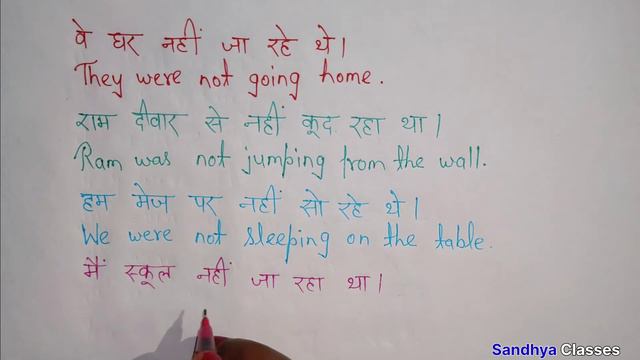 वे घर नहीं जा रहे थे।
They were not going home.
राम दीवार से नहीं कूद रहा था।
Ram was not jumping from the wall.
हम मेज पर नहीं सो रहे थे।
We were not sleeping on the table.
मैं स्कूल नहीं जा रहा था।
Sandhya Classes